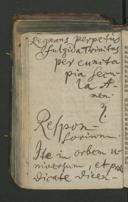 Regnans perpetue
fulgida trinitas
per cuncta
pia secu
la A-
men.
Respon-
sorium.
Ite in orbem u
niversum, et præ
dicate dicen-